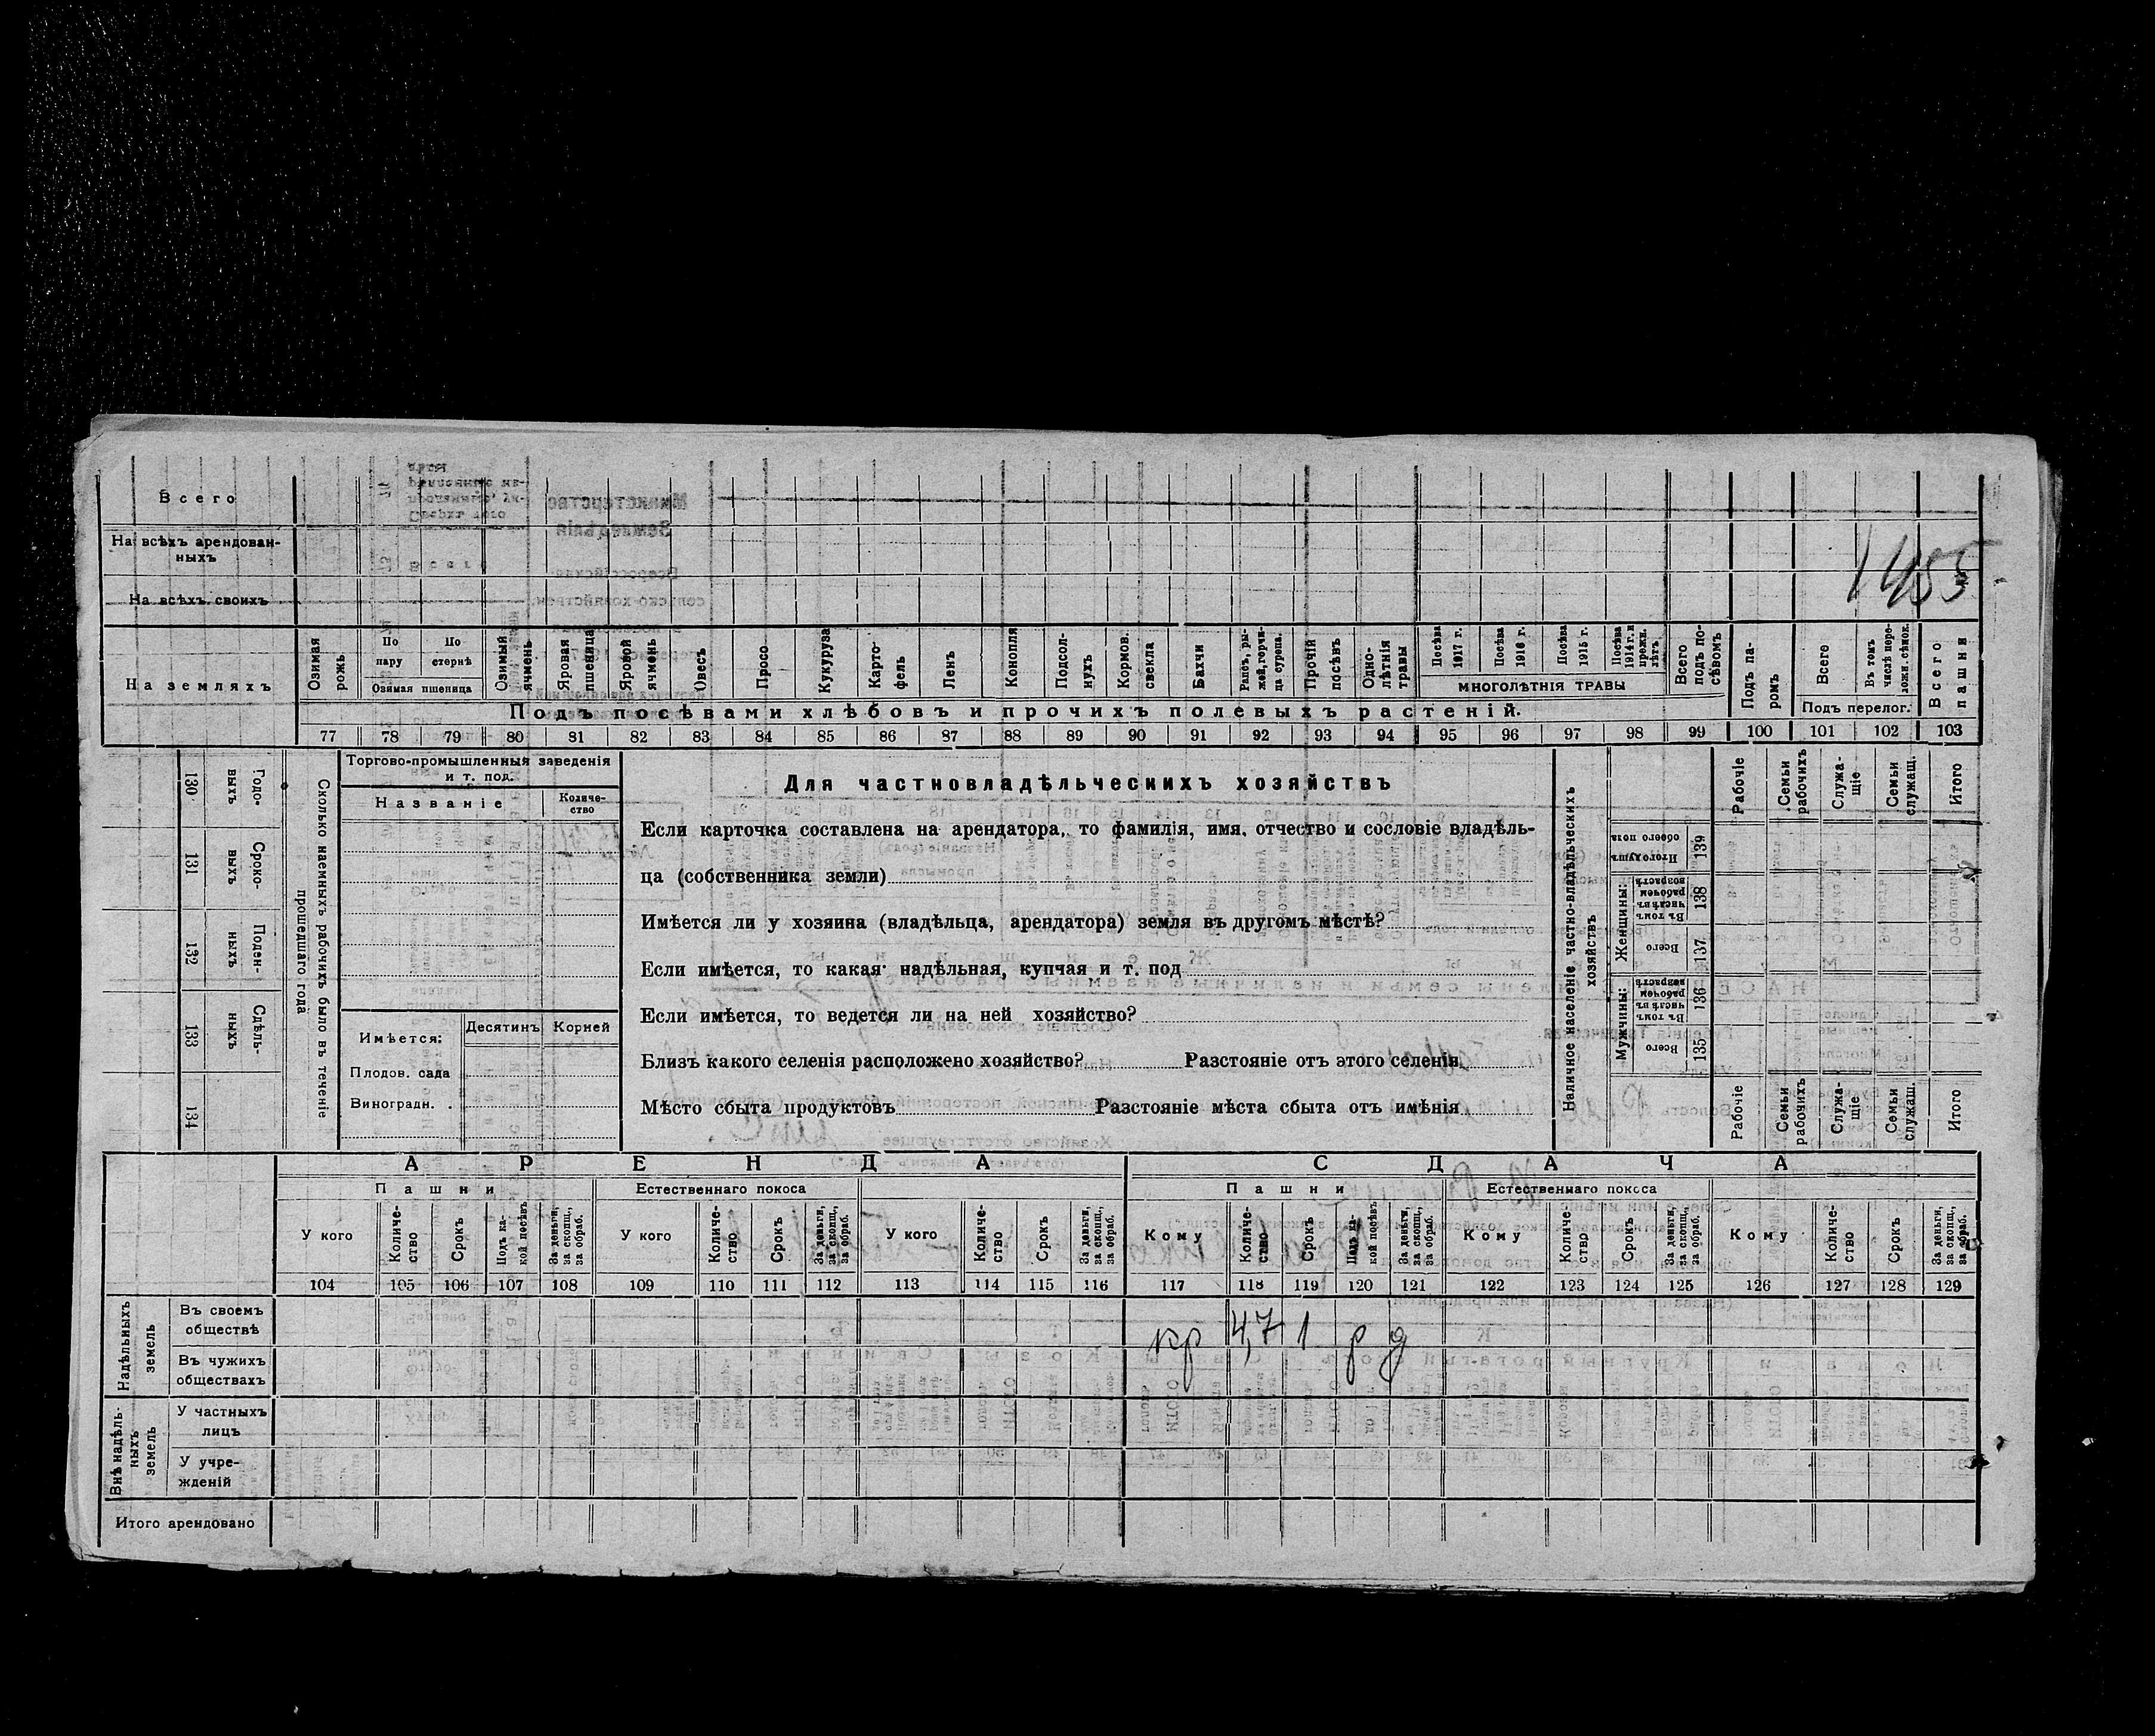 Всего
На всѣхъ арендован-
ныхъ
1455
На всѣхъ своихъ
На земляхъ
Озимая рожь
По пару
По стернѣ
Озимая пшеница
Озимый ячмень
Яровая пшеница
Яровой ячмень
Овесъ
Просо
Кукуруза
Карто-
фель
Ленъ
Конопля
Подсол-
нухъ
Кормов.
свекла
Бахчи
Рапсъ, ры-
жей, горчи-
ца сурепа.
Прочій
посѣвъ
Одно-
лѣтнія
травы
Посѣва
1917 г.
Посѣва
1916 г.
Посѣва
1915 г.
Посѣва
1914 г. и
прежн.
лѣтъ
МНОГОЛѢТНІЯ ТРАВЫ
Всего
подъ по-
сѣвомъ
Подъ па-
ромъ
Всего
Въ томъ
числѣ пере-
ложн. сѣнок.
Подъ перелог.
Всего
пашни
Подъ посѣвами хлѣбовъ и прочихъ полевыхъ растеній.
77 78 79 80 81 82 83 84 85 86 87 88 89 90 91 92 93 94 95 96 97 98 99 100 101 102 103
130 Годо-
выхъ
131 Сроко-
выхъ
132 Поден-
ныхъ
133 Сдѣль-
ныхъ
134
Сколько наемныхъ рабочихъ было въ теченіе
прошедшаго года
Торгово-промышленныя заведенія
и т. под.
Названіе
Количе-
ство
Имѣется:
Десятинъ
Корней
Плодов. сада
Виноградн. .
Для частновладѣльческихъ хозяйствъ
Если карточка составлена на арендатора, то фамилія, имя, отчество и сословіе владѣль-
ца (собственника земли)
Имѣется ли у хозяина (владѣльца, арендатора) земля въ другомъ мѣстѣ?
Если имѣется, то какая: надѣльная, купчая и т. под
Если имѣется, то ведется ли на ней хозяйство?
Близъ какого селенія расположено хозяйство? Разстояніе отъ этого селенія
Мѣсто сбыта продуктовъ Разстояніе мѣста сбыта отъ имѣнія
Наличное населеніе частно-владѣльческихъ
хозяйствъ
Рабочіе
Семьи
рабочихъ
Служа-
щіе
Семьи
служащ.
Итого
Итого душъ
обоего пола
139
Женщины:
Въ томъ
числѣ въ
рабочемъ
возрастѣ
138
Всего
137
Мужчины:
Въ томъ
числѣ въ
рабочемъ
возрастѣ
136
Всего
135
Рабочіе
Семьи
рабочихъ
Служа-
щіе
Семьи
служащ.
Итого
АРЕНДА
СДАЧА
Пашни
Естественнаго покоса
Пашни
Естественнаго покоса
У кого
Количе-
ство
Срокъ
Подъ ка-
кой посѣвъ
За деньги,
за скопщ.,
за обраб.
У кого
Количе-
ство
Срокъ
За деньги,
за скопщ.,
за обраб.
У кого
Количе-
ство
Срокъ
За деньги,
за скопщ.,
за обраб.
Кому
Количе-
ство
Срокъ
Подъ ка-
кой посѣвъ
За деньги,
за скопщ.,
за обраб.
Кому
Количе-
ство
Срокъ
За деньги,
за скопщ.,
за обраб.
Кому
Количе-
ство
Срокъ
За деньги,
за скопщ.,
за обраб.
104 105 106 107 108 109 110 111 112 113 114 115 116 117 118 119 120 121 122 123 124 125 126 127 128 129
Надѣльныхъ
земель
Въ своемъ
обществѣ
кр 4,7 1 р д
Въ чужихъ
обществахъ
Внѣ надѣль-
ныхъ
земель
У частныхъ
лицъ
У учре-
жденій
Итого арендовано